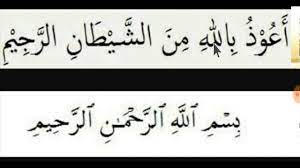 أَعُوْذُ بِاللهِ مِنَ الشَّيْطَانِ الرَّجِيْمِ
بِسْمِ ٱللَّهِ ٱلرَّحْمَٰنِ ٱلرَّحِيمِ